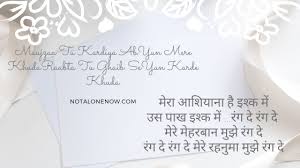 Moujzaa Tu Kardiya Ab Yun Mere
Khuda Raabta Tu Ghaib Se Yun Karde
Khuda
NOTALONENOW.COM
मेरा आशियाना है इश्क में
उस पाख इश्क में...रंग दे रंग दे
मेरे मेहरबान मुझे रंग दे
रंग दे रंग दे मेरे रहनुमा मुझे रंग दे